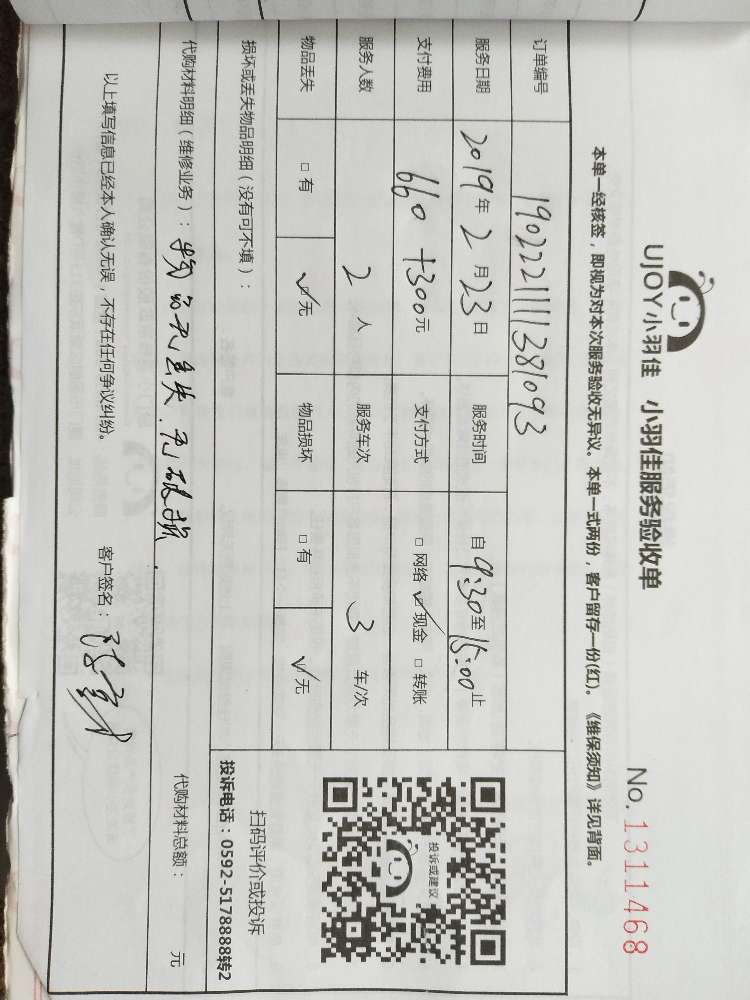 UJOY小羽佳 小羽佳服务验收单
No. 1311468
本单一经核签，即视为对本次服务验收无异议。本单一式两份，客户留存一份(红)。《维保须知》详见背面。
订单编号 190222111381093
服务日期 2019年2月23日 服务时间 自9:30至15:00止
支付费用 660+300元 支付方式 □网络 ☑现金 □转账
服务人数 2人 服务车次 3车/次
物品丢失 □有 ☑无 物品损坏 □有 ☑无
投诉或建议
扫码评价或投诉
投诉电话：0592-5178888转2
损坏或丢失物品明细（没有可不填）：
代购材料明细（维修业务）：物品无丢失.无破损. 代购材料总额： 元
以上填写信息已经本人确认无误，不存在任何争议纠纷。 客户签名：